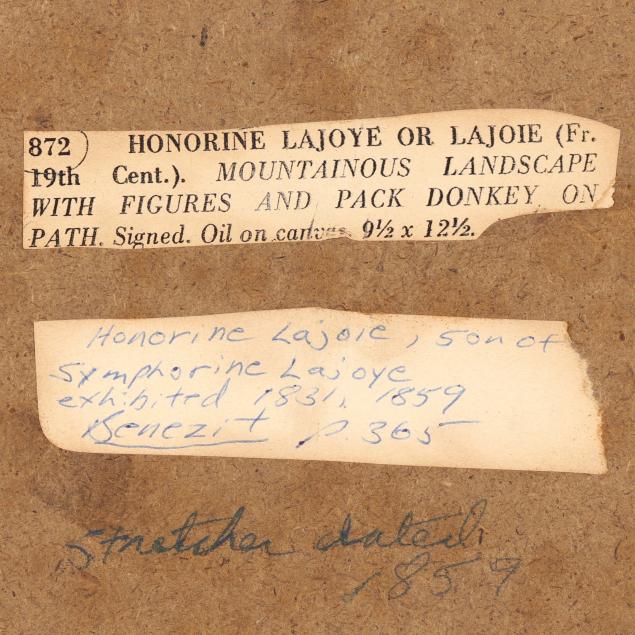 872 HONORINE LAJOYE OR LAJOIE (Fr.
19th Cent.). MOUNTAINOUS LANDSCAPE
WITH FIGURES AND PACK DONKEY ON
PATH. Signed. Oil on canvas. 9½ x 12½.
Honorine Lajoie, son of
Symphorine Lajoye
exhibited 1831, 1859
Benezit p. 365
Stretcher dated
1859